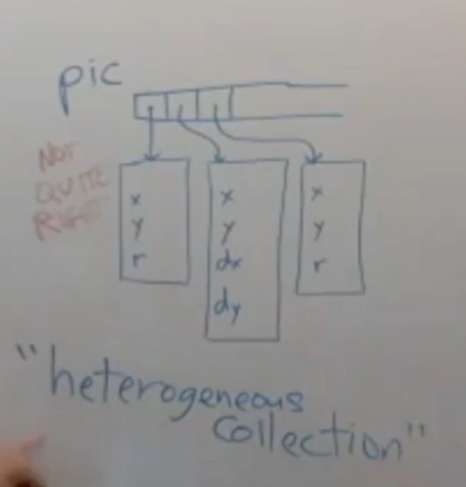 pic
NOT
QUITE
RIGHT
x
y
r
x
y
dx
dy
x
y
r
"heterogeneous
collection"